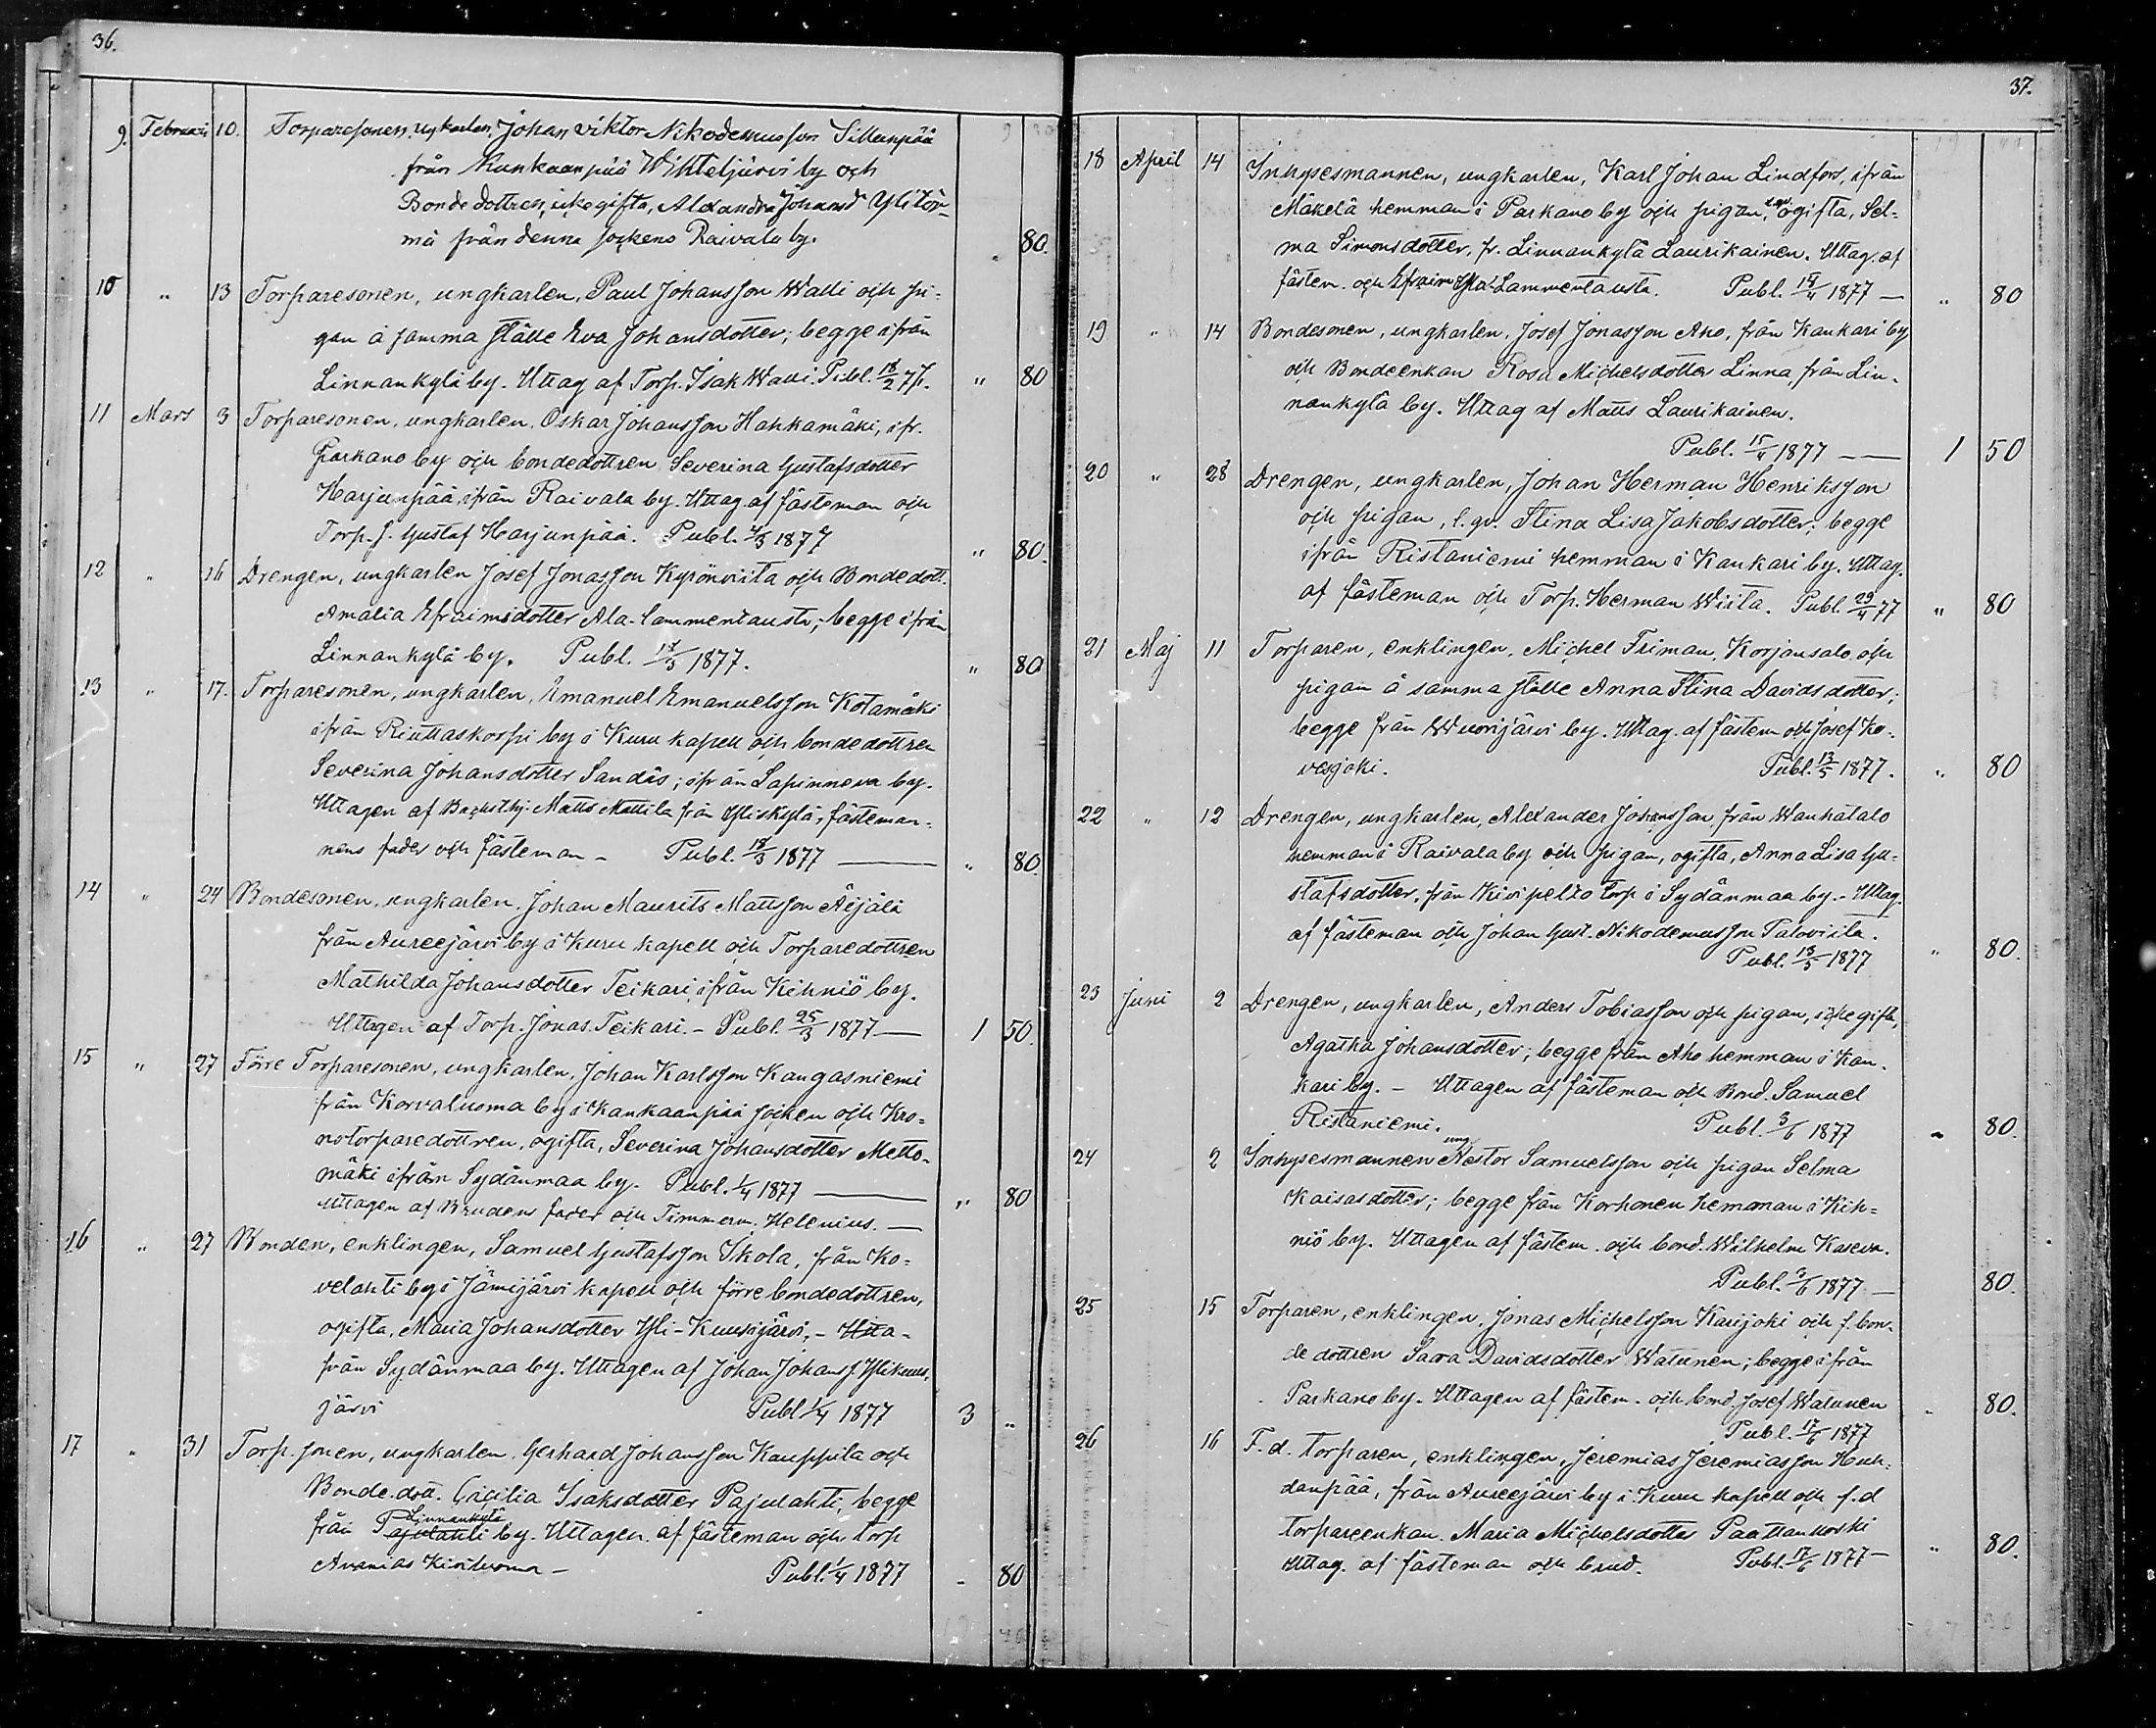 36.
9. Februari 10. Torparesonen, ungkarlen, Johan Viktor Nikodemusson Sillanpää
från Kankaanpää Wihteljärvi by och
Bondedottren, icke gifta, Alexandra Johansd Ylitör-
mä från denna sockens Raivala by. 80.
10 " 13 Torparesonen, ungkarlen, Paul Johansson Walli och pi-
gan å samma ställe Eva Johansdotter; begge ifrån
Linnankylä by. Uttag af Torp. Isak Walli. Publ. 18/2 77. " 80
11 Mars 3 Torparesonen, ungkarlen, Oskar Johansson Hahkamäki, ifr.
Parkano by och bondedottren Severina Gustafsdotter
Harjunpää ifrån Raivala by. Uttag af fästeman och
Torp. s. Gustaf Harjunpää. Publ. 4/3 1877 " 80.
12 " 16 Drengen, ungkarlen Josef Jonasson Kyrönviita och Bondedott.
Amalia Efraimsdotter Ala-Lammentausta; begge ifrån
Linnankylä by. Publ. 18/3 1877. " 80
13 " 17. Torparesonen, ungkarlen, Emanuel Emanuelsson Kotamäki
ifrån Riuttaskorpi by i Kuru kapell och bondedottren
Severina Johansdotter Sandås; ifrån Lapinneva by.
Uttagen af Matts Mattila från Yliskylä, fästeman-
nens fader och fästeman - Publ. 18/3 1877 " 80.
14 " 24 Bondesonen, ungkarlen, Johan Maurits Mattsson Äijälä
från Aureejärvi by i Kuru kapell och Torparedottren
Mathilda Johansdotter Teikari, ifrån Kihniö by.
Uttagen af Torp. Jonas Teikari. - Publ. 25/3 1877 1 50.
15 " 27 Förre Torparesonen, ungkarlen, Johan Karlsson Kangasniemi
från Korvaluoma by i Kankaanpää socken och Kro-
notorparedottren, ogifta, Severina Johansdotter Metto-
mäki ifrån Sydänmaa by. Publ. 1/4 1877 " 80
Uttagen af Brudens fader och Timmerm. Helenius.
16 " 27 Bonden, enklingen, Samuel Gustafsson Skola, från Ko-
velahti by i Jämijärvi kapell och förre bondedottren,
ogifta, Maria Johansdotter Yli-Kuusijärvi, - Utta-
från Sydänmaa by. Uttagen af Johan Johans s. Ylikuus-
järvi Publ 1/4 1877 3 "
17 " 31 Torp. sonen, ungkarlen, Gerhard Johansson Kauppila och
Bonde.dott. Cicilia Isaksdotter Pajulahti, begge
Linnankylä
från Pajulahti by. Uttagen af fästeman och torp
Ananias Kiviluoma - Publ. 1/4 1877 - 80
37.
18 April 14 Inhysesmannen, ungkarlen, Karl Johan Lindfors, ifrån
Mäkelä hemman i Parkano by och pigan, ogifta, Sel-
ma Simonsdotter, fr. Linnankylä Laurikainen. Uttag. af
fästem. och Efraim Lammentausta. Publ. 15/4 1877 " 80
19 " 14 Bondesonen, ungkarlen, Josef Jonasson Aho, från Kankari by
och Bondeenkan Rosa Michelsdotter Linna, från Lin-
nankylä by. Uttag af Matts Laurikainen.
Publ. 15/4 1877 1 50
20 " 28 Drengen, ungkarlen, Johan Herman Henriksson
och pigan, l. qv. Stina Lisa Jakobsdotter; begge
ifrån Ristaniemi hemman i Kankari by. Uttag.
af fästeman och Torp. Herman Wiita. Publ. 29/4 77 " 80
21 Maj 11 Torparen, enklingen, Michel Friman, Korjansalo och
pigan å samma ställe Anna Stina Davidsdotter;
begge från Wuorijärvi by. Uttag. af fästem och Josef Ko-
vesjoki. Publ. 13/5 1877. " 80
22 " 12 Drengen, ungkarlen, Alexander Johansson från Wanhatalo
hemman i Raivala by och pigan, ogifta, Anna Lisa Gu-
stafsdotter, från Kivipelto torp i Sydänmaa by. - Uttag.
af fästeman och Johan Gust. Nikodemusson Taloviita.
Publ. 13/5 1877 " 80.
23 Juni 2 Drengen, ungkarlen, Anders Tobiasson och pigan, icke gifta,
Agatha Johansdotter; begge från Aho hemman i Kan-
kari by. - Uttagen af fästeman och Bond. Samuel
Ristaniemi. Publ. 3/6 1877 " 80.
ung
24 2 Inhysesmannen Nestor Samuelsson och pigan Selma
Kaisasdotter; begge från Korhonen hemman i Kih-
niö by. Uttagen af fästem. och bond. Wilhelm Kareva.
Publ. 3/6 1877 80.
25 15 Torparen, enklingen, Jonas Michelsson Karijoki och f. bon-
dedottren Sara Davidsdotter Watunen; begge ifrån
Parkano by. Uttagen af fästem. och bond. Josef Watunen " 80.
Publ. 17/6 1877
26 16 F.d. torparen, enklingen, Jeremias Jeremiasson Huh-
danpää, från Aureejärvi by i Kuru kapell och f.d
torpareenkan Maria Michelsdotter Paattankoski
Uttag. af fästeman och brud. Publ. 17/6 1877 " 80.